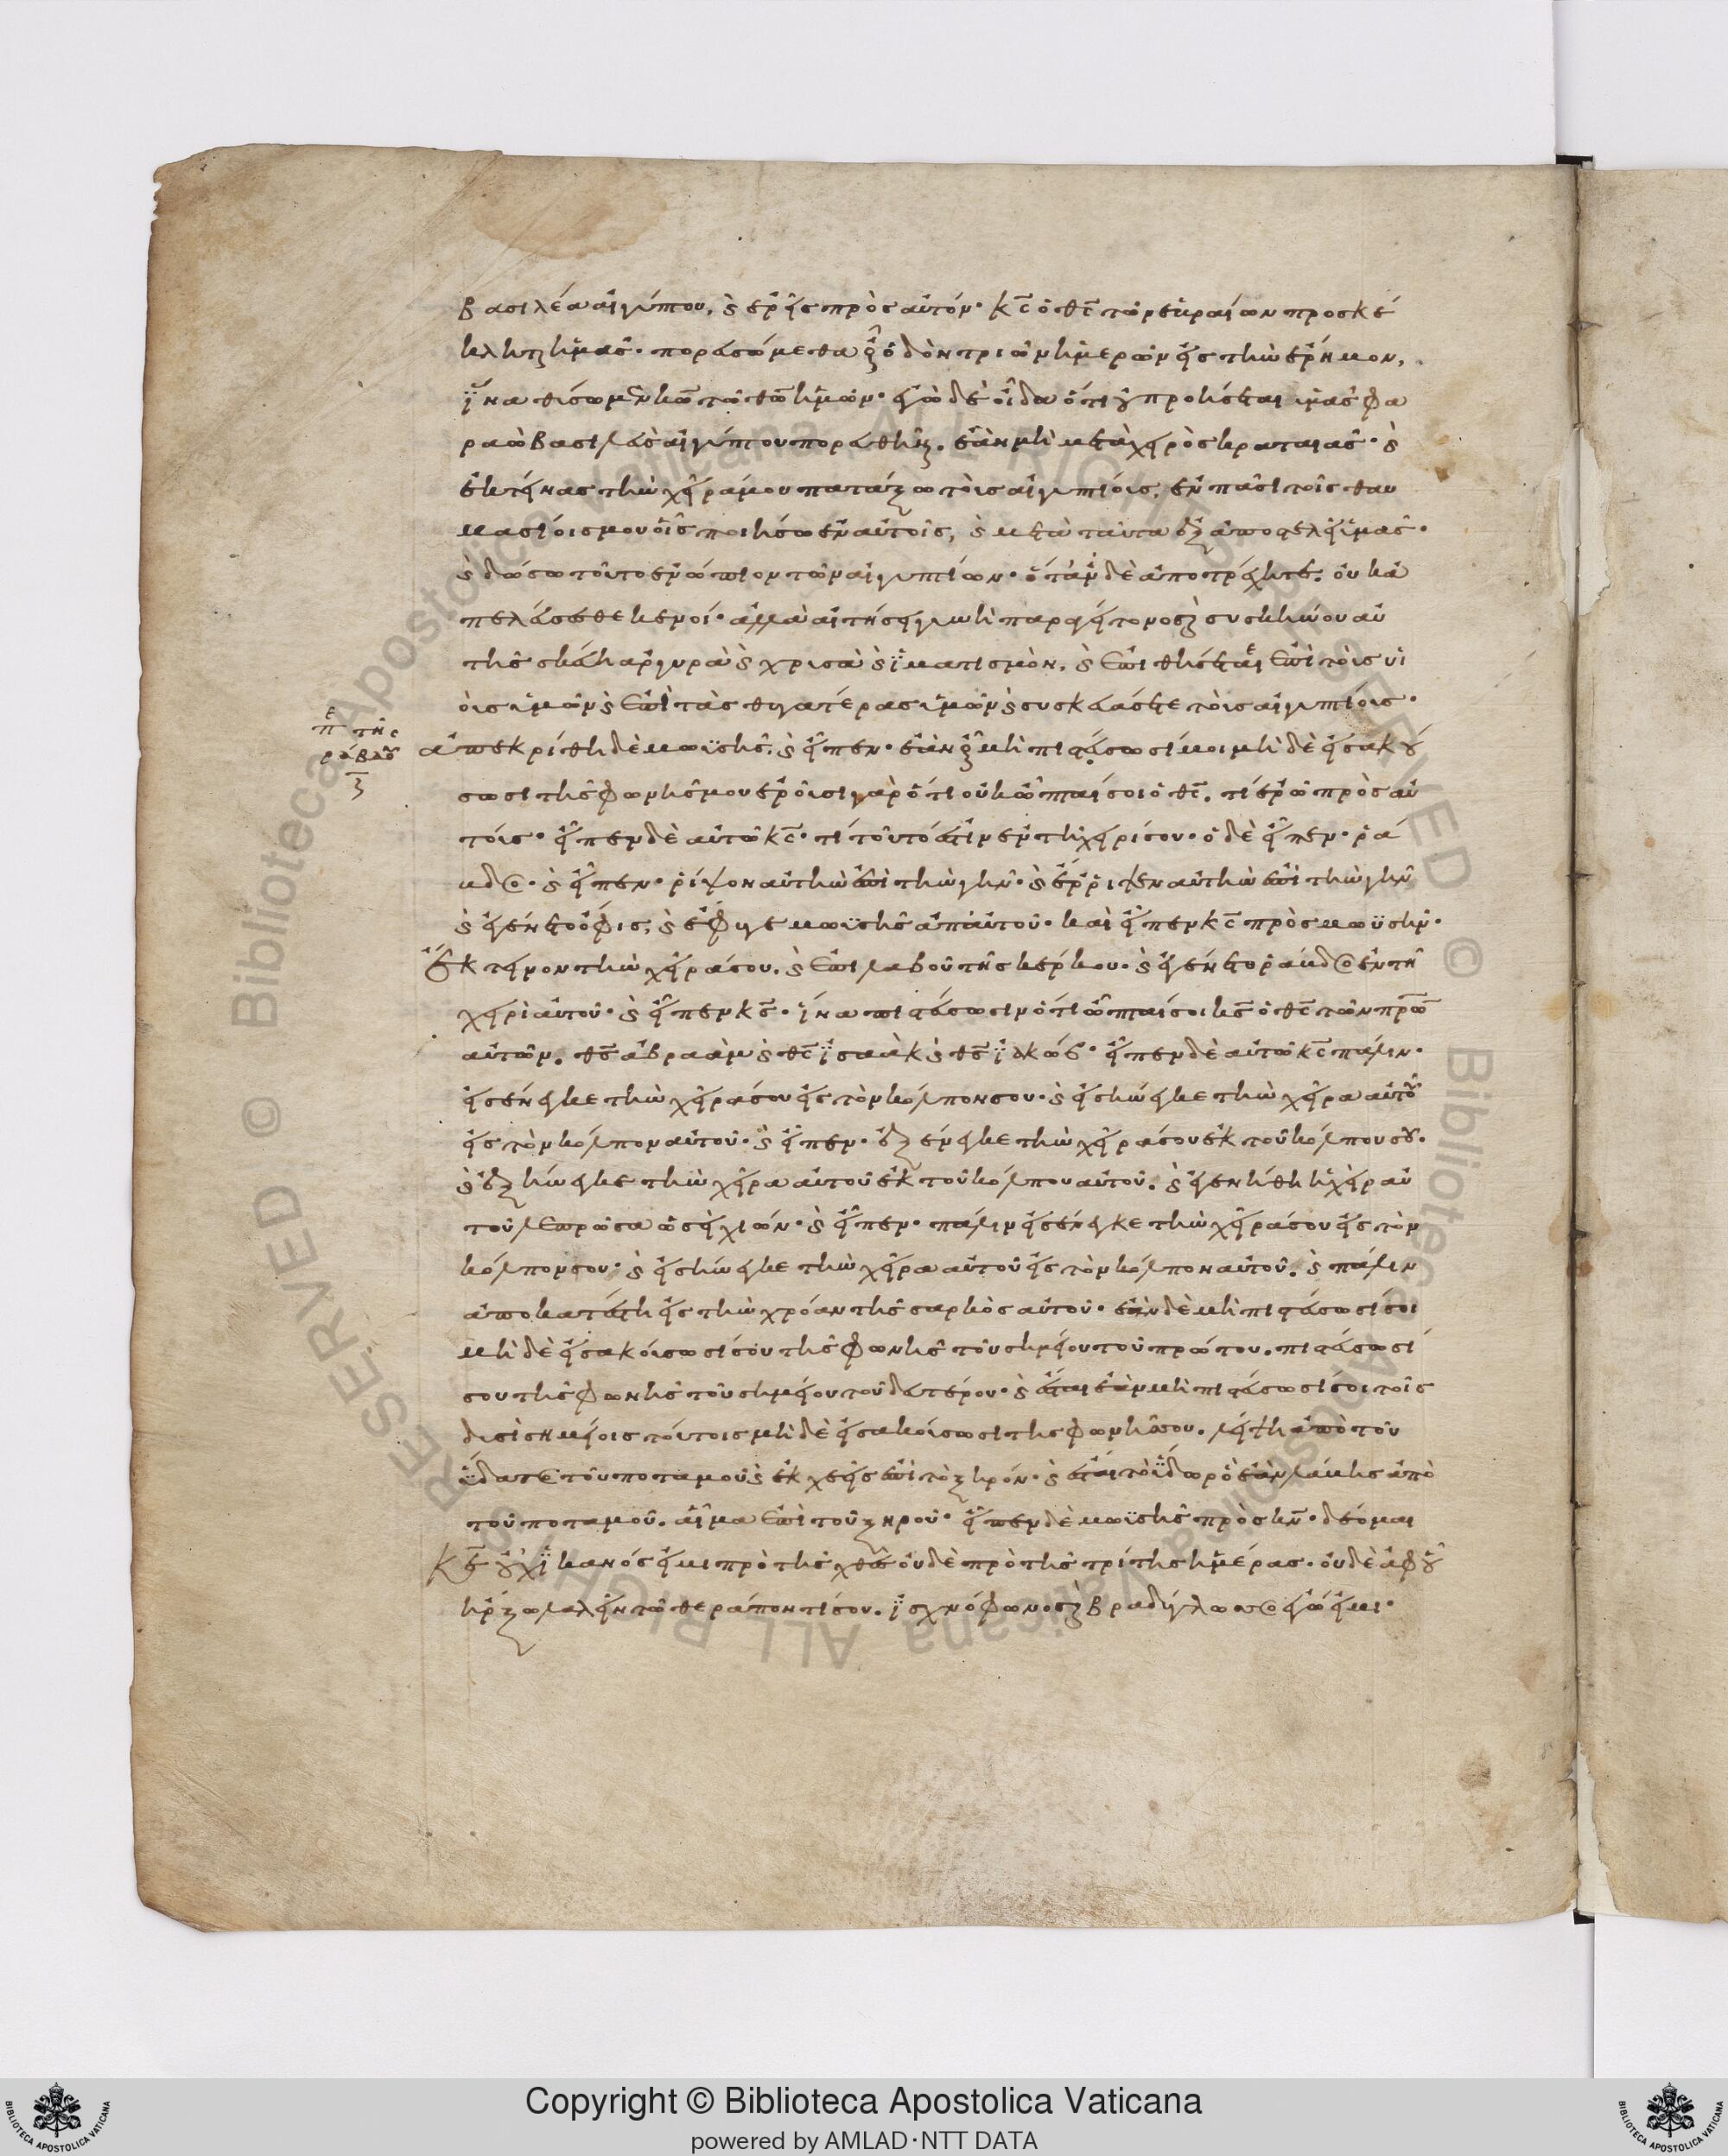 βασιλέα αἰγύπτου, ϗ ἐρεῖς πρὸς αὐτόν· κ̅ς̅ ὁ θ̅ς̅ τῶν ἑβραίων προσκέ
κληται ἡμᾶς· πορευσώμεθα οὖν ὁδὸν τριῶν ἡμερῶν εἰς τὴν ἔρημον,
ἵνα θύσωμεν κ̅ω̅ τῶ θ̅ω̅ ἡμῶν· ἐγὼ δὲ οἶδα ὅτι οὐ προήσεται ὑμᾶς φα
ραὼ βασιλεὺς αἰγύπτου πορευθῆναι. ἐὰν μὴ μετὰ χειρὸς κραταιᾶς· ϗ
ἐκτείνας τὴν χεῖρά μου πατάξω τοὺς αἰγυπτίους, ἐν πᾶσι τοῖς θαυ
μασίοις μου οἷς ποιήσω ἐν αὐτοῖς, ϗ μετὰ ταῦτα ἐξαποστελεῖ ὑμᾶς·
ϗ δώσω τοῦτο ἐνώπιον τῶν αἰγυπτίων· ὅταν δὲ ἀποτρέχητε. οὐκ ἀ
πελεύσεσθε κενοί· ἀλλὰ αἰτήσει γυνὴ παρὰ γείτονος ϗ συσκήνου αὐ
τῆς σκεύη ἀργυρᾶ ϗ χρυσᾶ ϗ ἱματισμὸν, ϗ ἐπιθήσεται ἐπὶ τοὺς υἱ
οὺς ὑμῶν ϗ ἐπὶ τὰς θυγατέρας ὑμῶν ϗ συσκευάσετε τοὺς αἰγυπτίους·
ἀπεκρίθη δὲ μωϋσῆς, ϗ εἶπεν· ἐὰν οὖν μὴ πιστεύσωσί μοι μὴ δὲ εἰσακού
σωσι τῆς φωνῆς μου ἐροῦσι γὰρ ὅτι οὐκ ὦπταί σοι ὁ θ̅ς̅. τί ἐρῶ πρὸς αὐ
τούς· εἶπεν δὲ αὐτῶ κ̅ς̅· τί τοῦτό ἐστιν ἐν τῆ χειρί σου· ὁ δὲ εἶπεν· ῥά
βδος· ϗ εἶπεν· ῥίψον αὐτὴν ἐπὶ τὴν γῆν· ϗ ἔρριψεν αὐτὴν ἐπὶ τὴν γῆν
ϗ ἐγένετο ὄφις, ϗ ἔφυγε μωϋσῆς ἀπ' αὐτοῦ· καὶ εἶπεν κ̅ς̅ πρὸς μωϋσῆν·
ἔκτεινον τὴν χεῖρά σου. ϗ ἐπιλαβοῦ τῆς κέρκου· ϗ ἐγένετο ῥάβδος ἐν τῆ
χειρὶ αὐτοῦ· ϗ εἶπεν κ̅ς̅· ἵνα πιστεύσωσιν ὅτι ὦπταί σοι κ̅ς̅ ὁ θ̅ς̅ τῶν π̅ρ̅ω̅
αὐτῶν. θ̅ς̅ ἀβραὰμ ϗ θ̅ς̅ ἰσαὰκ ϗ θ̅ς̅ ἰακώβ· εἶπεν δὲ αὐτῶ κ̅ς̅ πάλιν·
εἰσένεγκε τὴν χεῖρά σου εἰς τὸν κόλπον σου· ϗ εἰσήνεγκε τὴν χεῖρα αὐτοῦ
εἰς τὸν κόλπον αὐτοῦ· ϗ εἶπεν· ἐξένεγκε τὴν χεῖρά σου ἐκ τοῦ κόλπου σου.
ϗ ἐξήνεγκε τὴν χεῖρα αὐτοῦ ἐκ τοῦ κόλπου αὐτοῦ. ϗ ἐγενήθη ἡ χεὶρ αὐ
τοῦ λεπρῶσα ὡσεὶ χιών· ϗ εἶπεν· πάλιν εἰσένεγκε τὴν χεῖρά σου εἰς τὸν
κόλπον σου· ϗ εἰσήνεγκε τὴν χεῖρα αὐτοῦ εἰς τὸν κόλπον αὐτοῦ. ϗ πάλιν
ἀποκατέστη εἰς τὴν χρόαν τῆς σαρκὸς αὐτοῦ· ἐὰν δὲ μὴ πιστεύσωσί σοι
μὴ δὲ εἰσακούσωσί σου τῆς φωνῆς τοῦ σημείου τοῦ πρώτου. πιστεύσωσί
σου τῆς φωνῆς τοῦ σημείου τοῦ δευτέρου· ϗ ἔσται ἐὰν μὴ πιστεύσωσί σοι τοῖς
δυσὶ σημείοις τούτοις μὴ δὲ εἰσακούσωσι τῆς φωνῆς σου. λήψη ἀπὸ τοῦ
ὕδατος τοῦ ποταμοῦ ϗ ἐκχεεῖς ἐπὶ τὸ ξηρόν· ϗ ἔσται τὸ ὕδωρ ὃ ἐὰν λάβης ἀπὸ
τοῦ ποταμοῦ. αἷμα ἐπὶ τοῦ ξηροῦ· εἶπεν δὲ μωϋσῆς πρὸς κ̅ν̅· δέομαι
κ̅ε̅ οὐχ ἱκανός εἰμι πρὸ τῆς χθὲς οὐδὲ πρὸ τῆς τρίτης ἡμέρας. οὐδὲ ἀφ' οὗ
ἤρξω λαλεῖν τῶ θεράποντί σου. ἰσχνόφωνος ϗ βραδύγλωσσος ἐγώ εἰμι·
π̅ε̅ τῆς
ράβδου
ζ
Copyright © Biblioteca Apostolica Vaticana
powered by AMLAD·NTT DATA